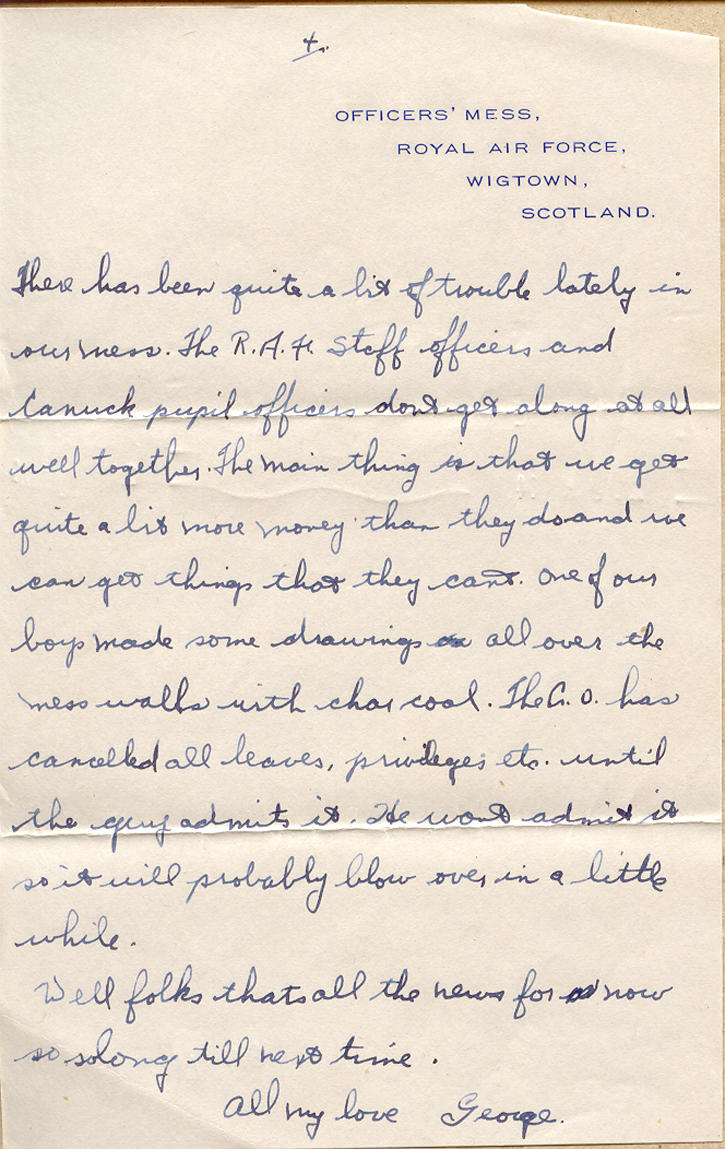 4.
OFFICERS' MESS,
ROYAL AIR FORCE,
WIGTOWN,
SCOTLAND.
There has been quite a bit of trouble lately in
our mess. The R.A.F. Staff officers and
Canuck pupil officers dont get along at all
well together. The main thing is that we get
quite a bit more money than they do and we
can get things that they cant. One of our
boys made some drawings all over the
mess walls with charcoal. The C.O. has
cancelled all leaves, privileges etc. until
the guy admits it. He wont admit it
so it will probably blow over in a little
while.
Well folks thats all the news for now
so solong till next time.
All my love George.